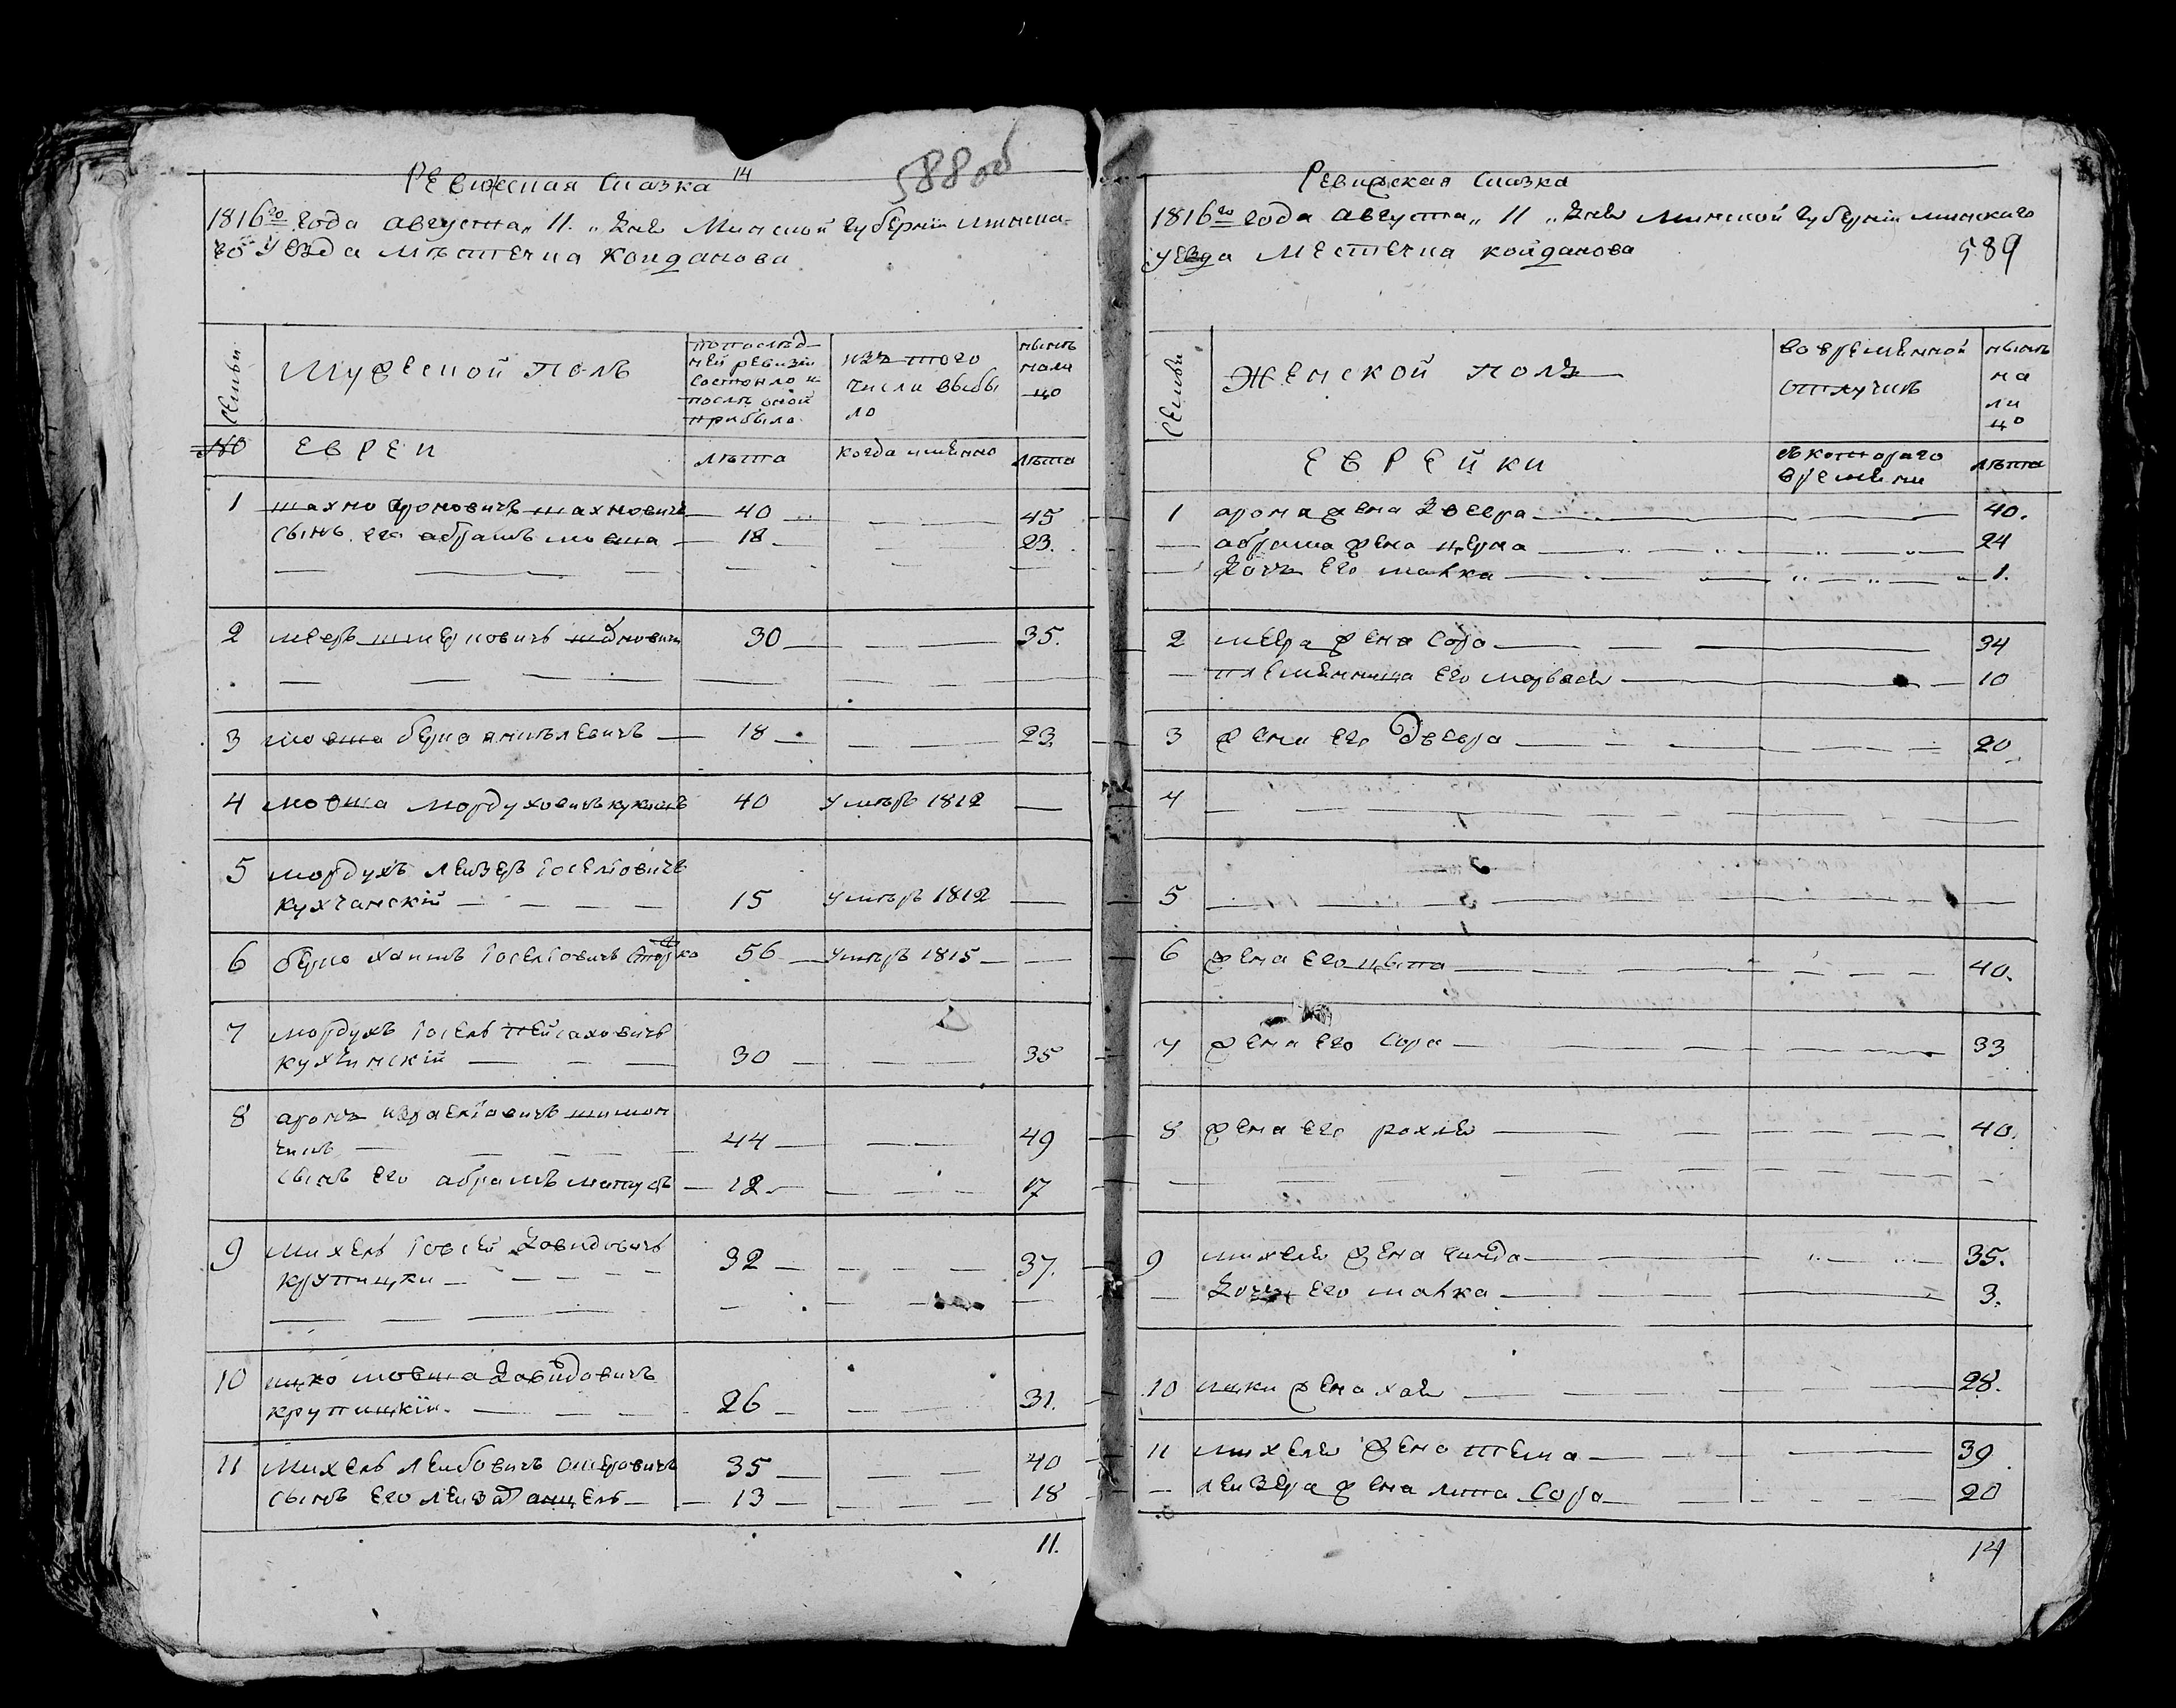 588об
Ревижская Сказка 14
1816го года августа „ 11 „ дня Минской губернии Минска-
го уезда Мѣстечка Койданова
Семьи
Мужеской полъ
по послѣд-
ней ревизіи
состояло и
послѣ оной
прибыло
изъ того
числа выбы
ло
нынѣ
нали
цо
№
Евреи
лѣта
когда именно
лѣта
1 шахно Ароновичъ шахновичъ 40 45
сынъ его абрамъ мовша 18 23.
2 мееръ 30 35.
3 мовша берко 18 23
4 мовша Мордуховичъ 40 умѣръ 1812
5 мордухъ лейзеръ Іоселіовичъ
кухчанскій 15 умѣръ 1812
6 берко хаимъ Іоселіовичъ 56 умѣръ 1815
7 мордухъ Іосель пейсаховичъ
кухчинскій 30 35
8 аронъ израеліовичъ шимон
чикъ 44 49
сынъ его абрамъ 12 17
9 михель Іовсей Довидовичъ
крупицки 32 37.
10 ицко мовша Довидовичъ
крупицкій 26 31.
11 михель лейбовичъ ошеровичъ 35 40
сынъ его лейзаръ анцель 13 18
11.
Ревижская Сказка
1816го года августа „ 11 „ дня минской губерніи минскаго
уезда Местечка койданова
589
Семьи
Женской полъ
во временной
отлучкѣ
нынѣ
на
ли
цо
Еврейки
съ котораго
времени
лѣта
1 арона жена Двейра 40.
абрама жена 24
Дочь его малка 1.
2 меера жена Сора 34
племянница его 10
3 жена его Двейра 20
4
5
6 жена его цыпа 40.
7 жена его Сора 33
8 жена его рохля 40.
9 михеля жена гинда 35.
Дочь его малка 3.
10 ицки жена хая 28.
11 михеля жена тема 39
лейзера жена Сора 20
14